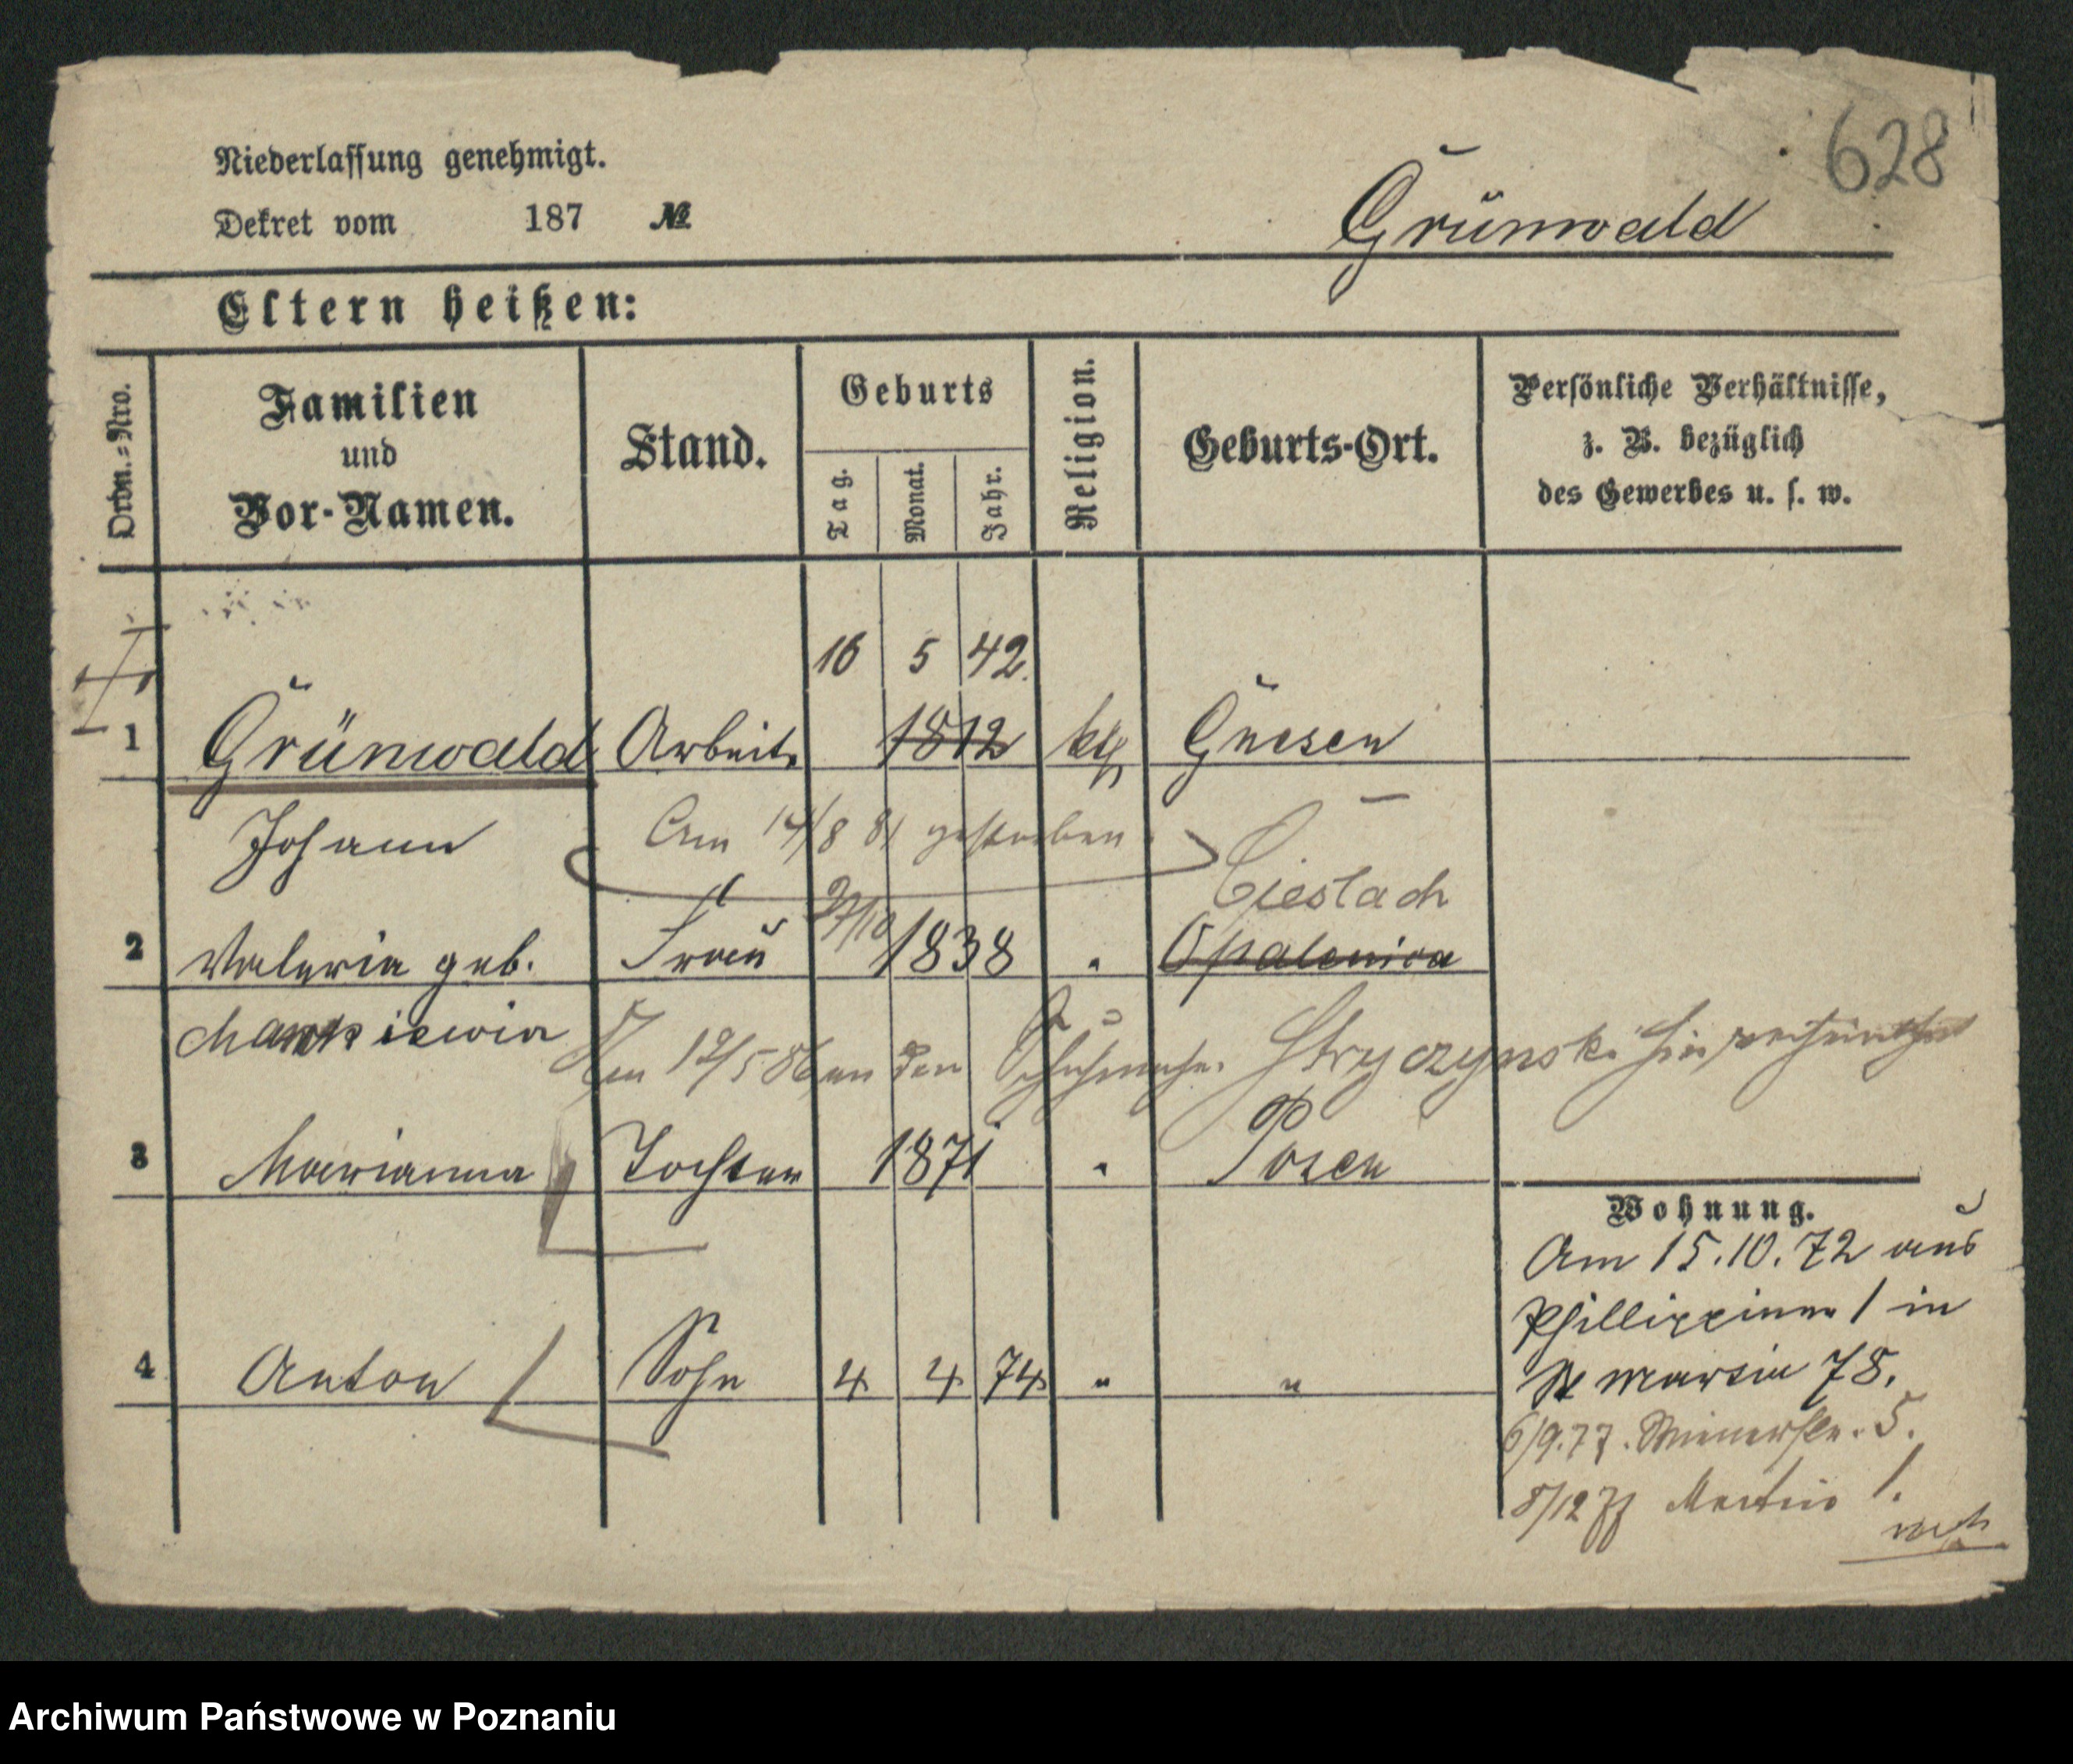 628
Niederlassung genehmigt.
Dekret vom 187 №
Grünwald
Eltern heißen:
Ordn.-Nro.
Familien
und
Vor-Namen.
Stand.
Geburts
Tag.
Monat.
Jahr.
Religion.
Geburts-Ort.
Persönliche Verhältnisse,
z. B. bezüglich
des Gewerbes u. s. w.
16 5 42.
1 Grünwald Arbeit. 1812 kth Gnesen
Johann Am 14/8 81 gestorben
Cieslach
27/10
2 Valeria geb. Frau 1838 " Opalenica
Am 12/5 86 an den Schuhmachr. Stryczynski hier verheirathet
3 Marianna Tochter 1871 " Posen
Wohnung.
Am 15.10.72 aus
Phillippinen 1 in
St Martin 78.
4 Anton Sohn 4 4 74 " "
6/9.77. 5.
8/12 77 Martin 1.